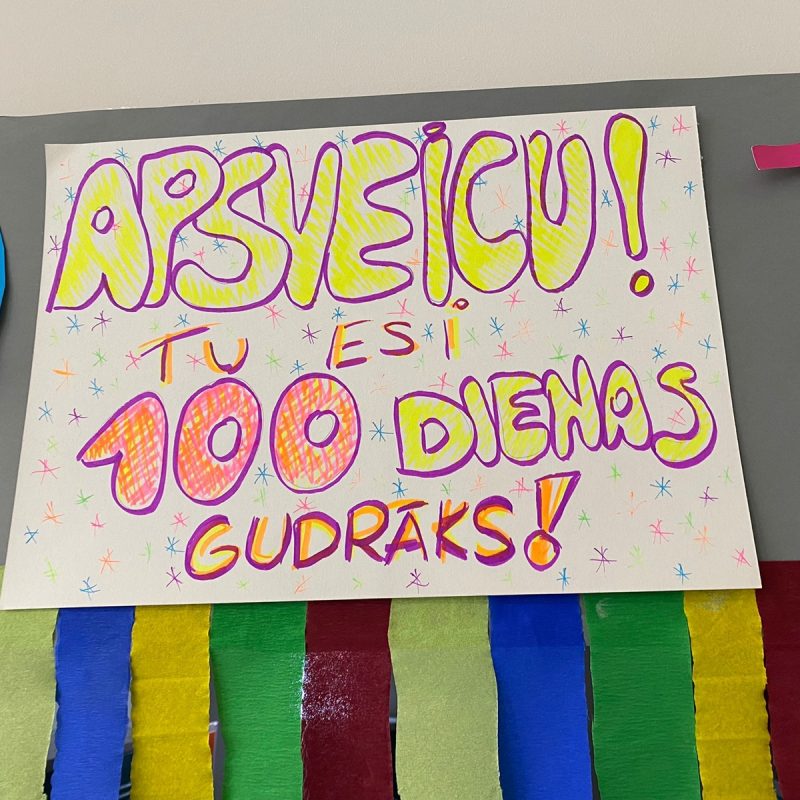 APSVEICU!
TU ESI
100 DIENAS
GUDRĀKS!